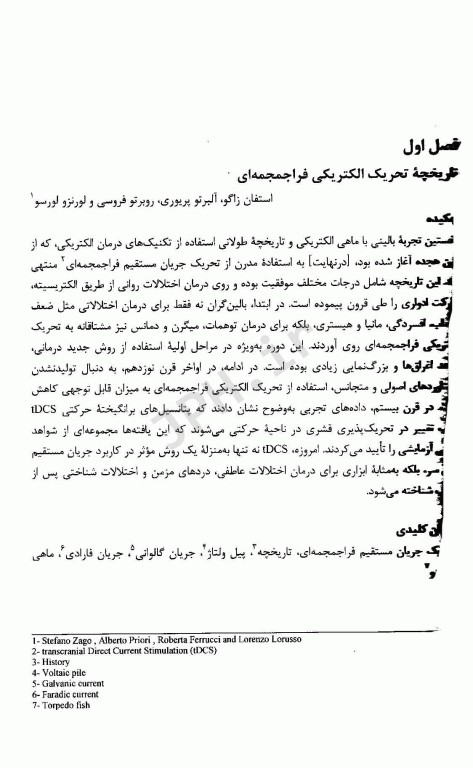 فصل اول
تاریخچهٔ تحریک الکتریکی فراجمجمه‌ای
استفان زاگو، آلبرتو پریوری، روبرتو فروسی و لورنزو لورسو۱
چکیده
نخستین تجربهٔ بالینی با ماهی الکتریکی و تاریخچهٔ طولانی استفاده از تکنیک‌های درمان الکتریکی، که از
هجده آغاز شده بود، [درنهایت] به استفادهٔ مدرن از تحریک جریان مستقیم فراجمجمه‌ای۲ منتهی
این تاریخچه شامل درجات مختلف موفقیت بوده و روی درمان اختلالات روانی از طریق الکتریسیته،
ادواری را طی قرون پیموده است. در ابتدا، بالین‌گران نه فقط برای درمان اختلالاتی مثل ضعف
افسردگی، مانیا و هیستری، بلکه برای درمان توهمات، میگرن و دمانس نیز مشتاقانه به تحریک
فراجمجمه‌ای روی آوردند. این دوره به‌ویژه در مراحل اولیهٔ استفاده از روش جدید درمانی،
اغراق‌ها و بزرگ‌نمایی زیادی بوده است. در ادامه، در اواخر قرن نوزدهم، به دنبال تولیدنشدن
اصولی و متجانس، استفاده از تحریک الکتریکی فراجمجمه‌ای به میزان قابل توجهی کاهش
در قرن بیستم، داده‌های تجربی به‌وضوح نشان دادند که پتانسیل‌های برانگیختهٔ حرکتی tDCS
تغییر در تحریک‌پذیری قشری در ناحیهٔ حرکتی می‌شوند که این یافته‌ها مجموعه‌ای از شواهد
آزمایشی را تأیید می‌کردند. امروزه، tDCS نه تنها به‌منزلهٔ یک روش مؤثر در کاربرد جریان مستقیم
بلکه به‌مثابهٔ ابزاری برای درمان اختلالات عاطفی، دردهای مزمن و اختلالات شناختی پس از
شناخته می‌شود.
کلیدی
جریان مستقیم فراجمجمه‌ای، تاریخچه۳، پیل ولتاژ۴، جریان گالوانی۵، جریان فارادی۶، ماهی
1- Stefano Zago , Alberto Priori , Roberta Ferrucci and Lorenzo Lorusso
2- transcranial Direct Current Stimulation (tDCS)
3- History
4- Voltaic pile
5- Galvanic current
6- Faradic current
7- Torpedo fish